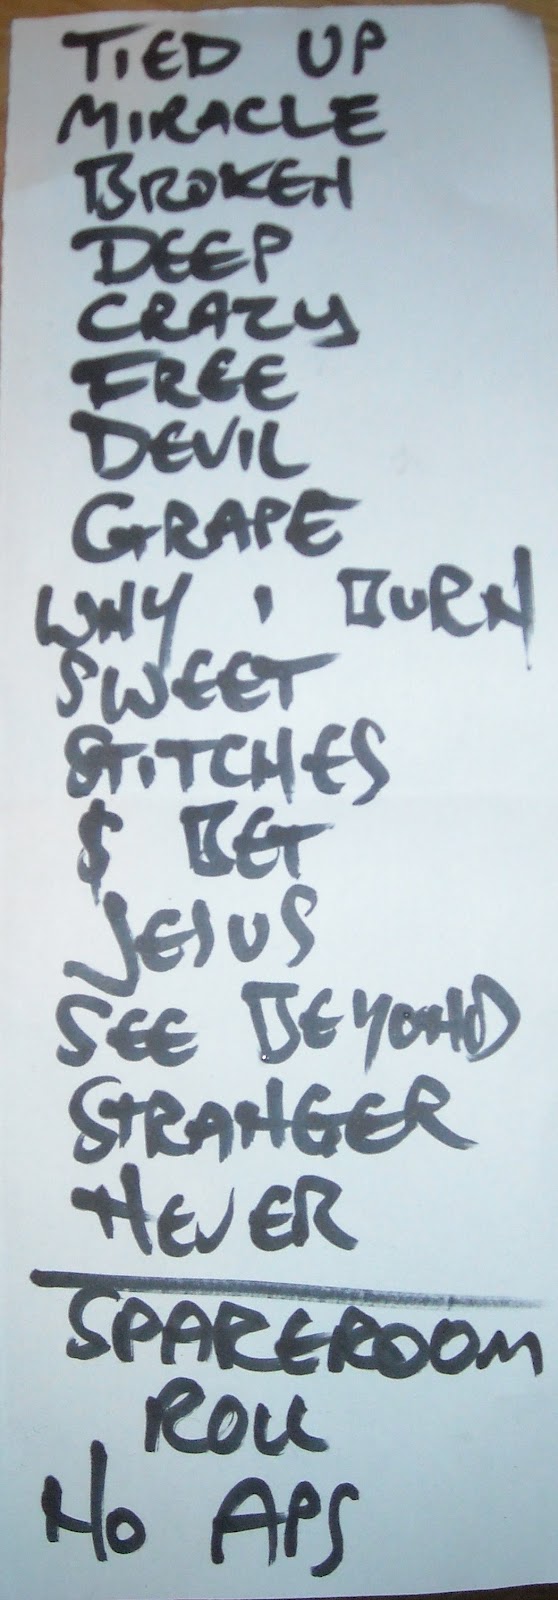 TIED UP
MIRACLE
BROKEN
DEEP
CRAZY
FREE
DEVIL
GRAPE
WHY I BURN
SWEET
STITCHES
$ BET
JESUS
SEE BEYOND
STRANGER
NEVER
SPAREROOM
ROLL
NO APS